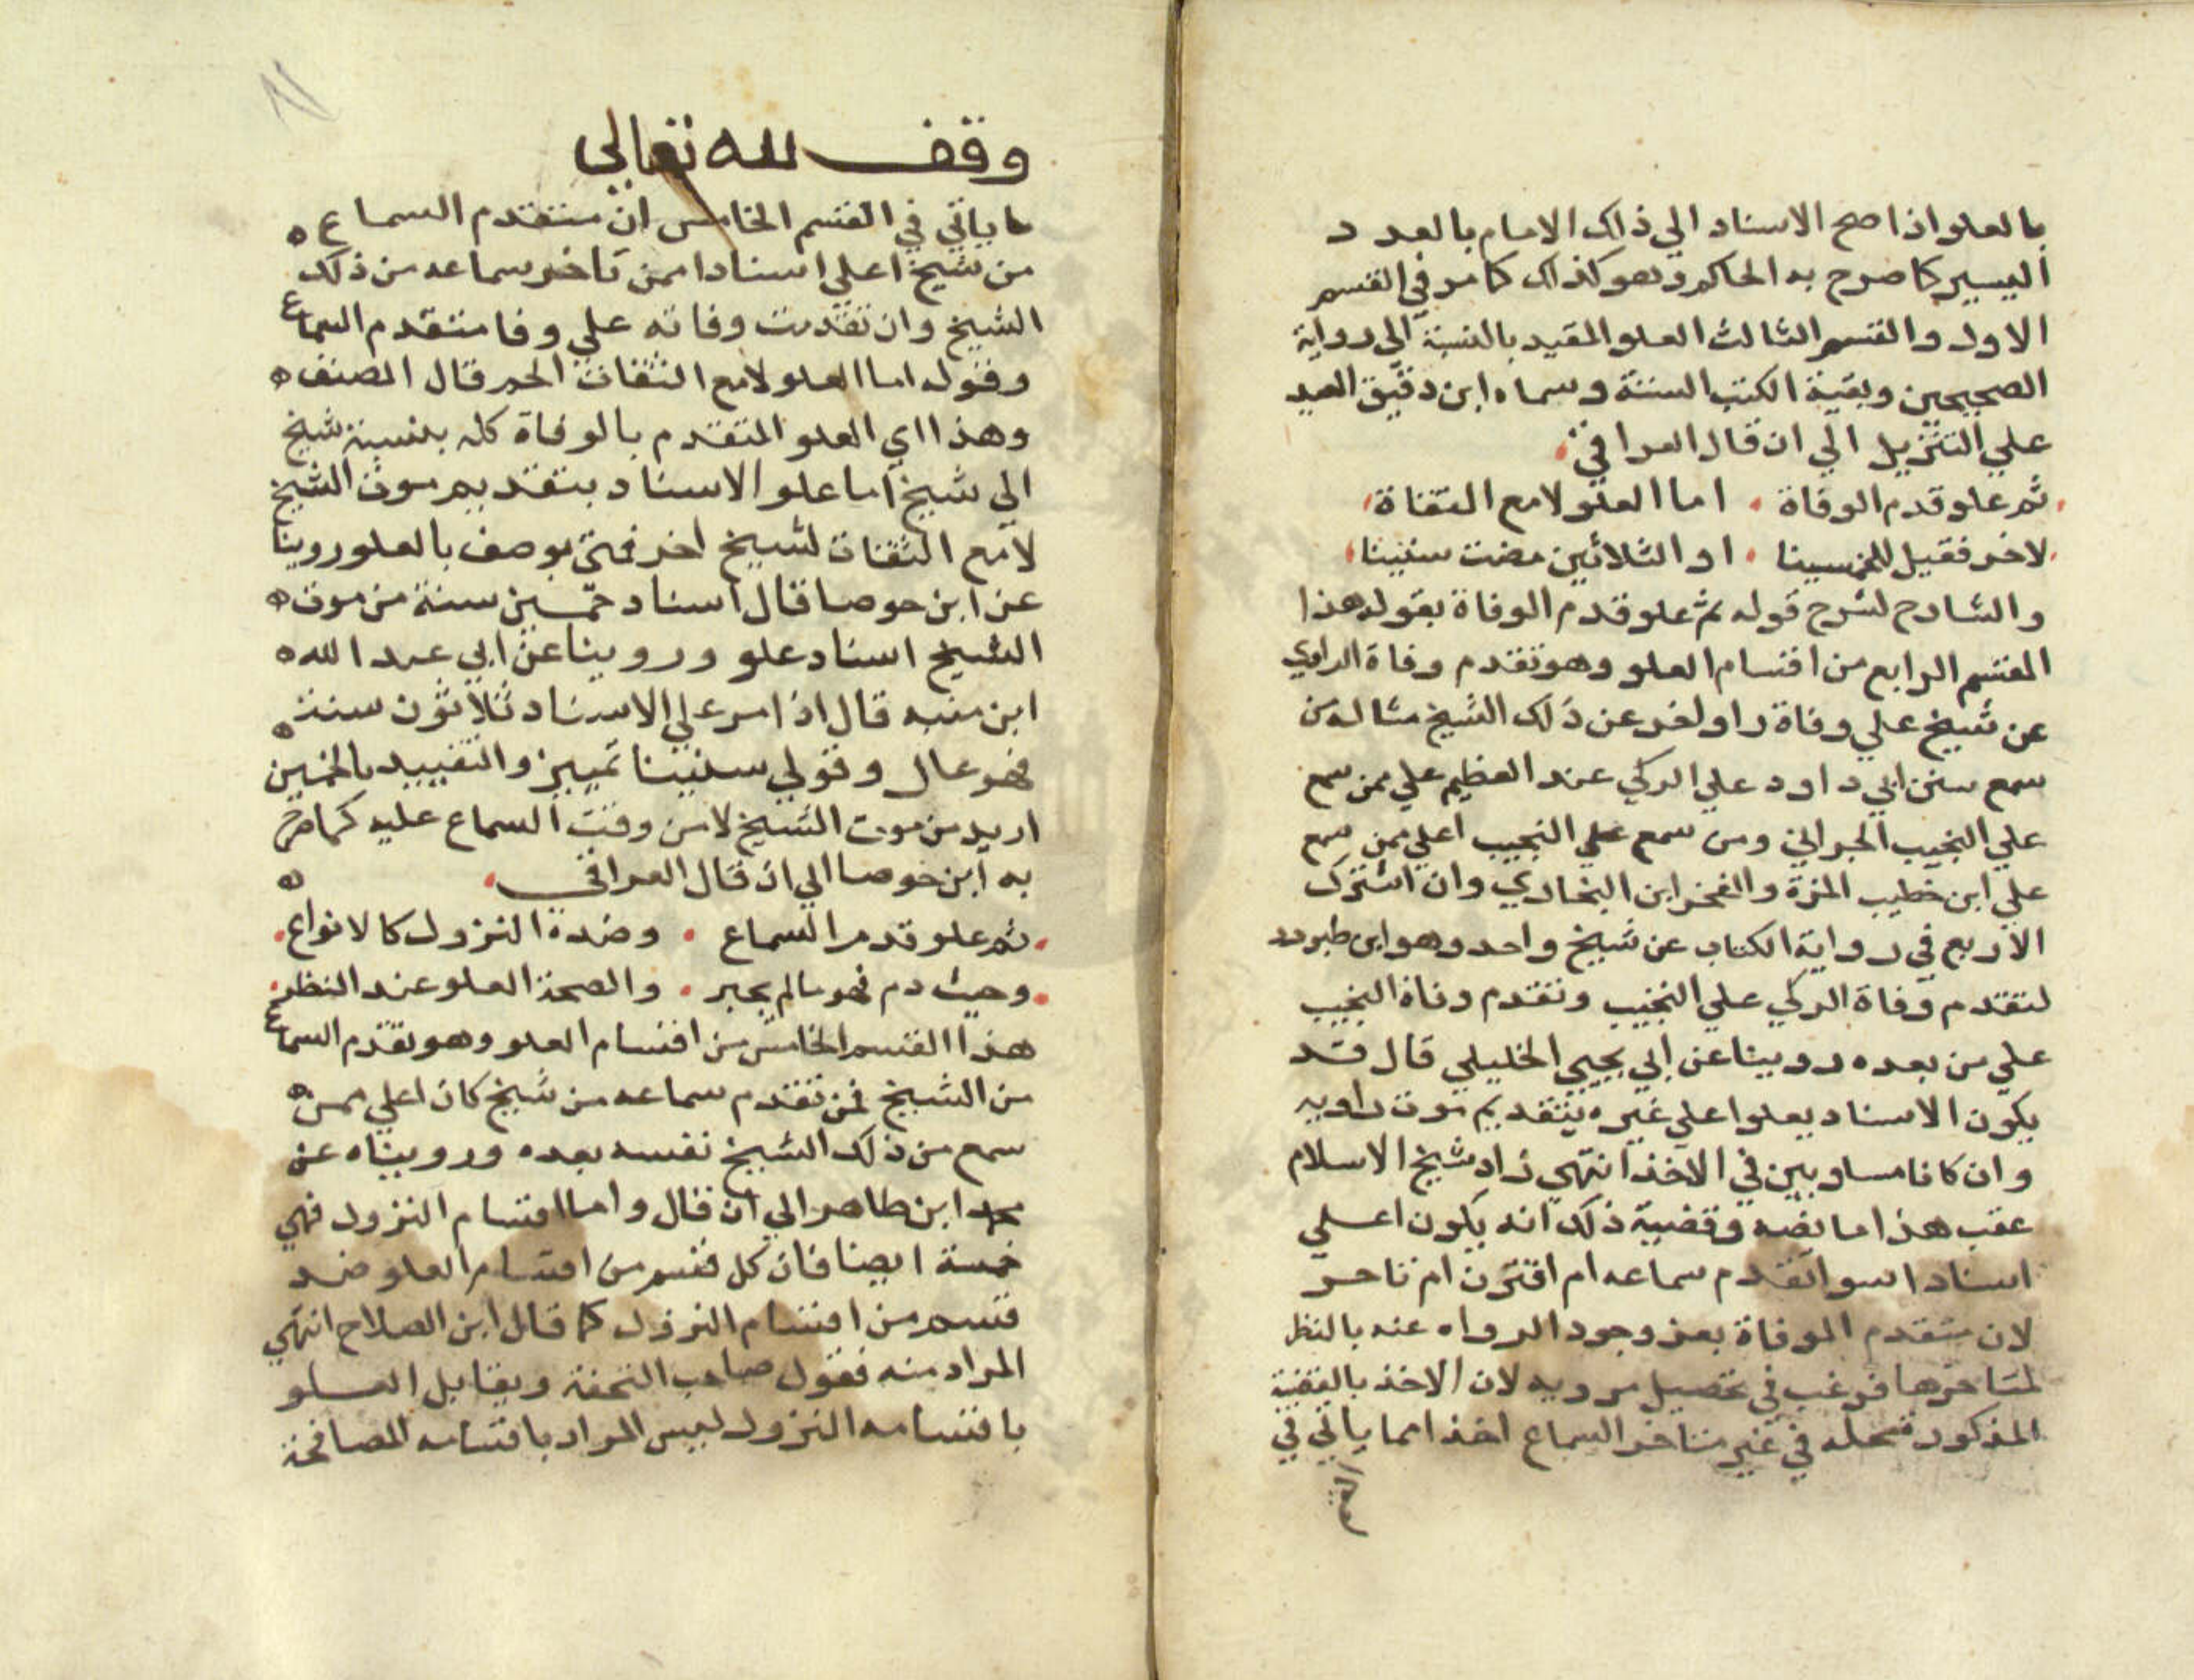 بالعلو اذا صح الاسناد الي ذلك الامام بالعدد
اليسير كما صرح به الحاكم وهو كذلك كما مر في القسم
الاول والقسم الثالث العلو المقيد بالنسبة الي رواية
الصحيحين وبقية الكتب الستة وسماه ابن دقيق العيد
علي التنزيل الي ان قال العراقي
ثم علو قدم الوفاة اما العلو لا مع التفاة
لاخر فقيل للخمسينا او الثلاثين مضت سنينا
والشارح لشرح قوله ثم علو قدم الوفاة بقوله هذا
القسم الرابع من اقسام العلو وهو تقدم وفاة الراوي
عن شيخ علي وفاة راو اخر عن ذلك الشيخ مثاله من
سمع سنن ابي داود علي الزكي عبد العظيم علي ممن سمع
علي النجيب الحراني ومن سمع علي النجيب اعلي ممن سمع
علي ابن خطيب المزة والفخر ابن البخاري وان اشترك
الاربع في رواية الكتاب عن شيخ واحد وهو ابن طبرزد
لتقدم وفاة الزكي علي النجيب وتقدم وفاة النجيب
علي من بعده روينا عن ابي يحيي الخليلي قال قد
يكون الاسناد يعلوا علي غيره بتقديم موت راويه
وان كانا متساويين في الاخذ انتهي زاد شيخ الاسلام
عقب هذا ما نصه وقضية ذلك انه يكون اعلي
اسنادا سوا تقدم سماعه ام اقترن ام تاخر
لان متقدم الوفاة يعز وجود الرواه عنه بالنظر
لمتاخرها فرغب في تحصيل مرويه لان الاخذ بالقضية
المذكورة محله في غير متاخر السماع اخذا مما ياتي في
وقف لله تعالي
ما ياتي في القسم الخامس ان متقدم السماع
من شيخ اعلي اسنادا ممن تاخر سماعه من ذلك
الشيخ وان تقدمت وفاته علي وفا متقدم السماع
وقوله اما العلو لا مع التفات الخ قال المصنف
وهذا اي العلو المتقدم بالوفاة كله بنسبة شيخ
الي شيخ اما علو الاسناد بتقديم موت الشيخ
لا مع التفات لشيخ اخر فمتي يوصف بالعلو روينا
عن ابن حوصا قال اسناد خمسين سنة من موت
الشيخ اسناد علو وروينا عن ابي عبد الله
ابن منبه قال اذا مر علي الاسناد ثلاثون سنة
فهو عال وقولي سنينا تمييز والتقييد بالخمسين
اريد من موت الشيخ لا من وقت السماع عليه كما صرح
به ابن حوصا الي ان قال العراقي
ثم علو قدم السماع وضده النزول كالانواع
وحيث ذم فهو ما لم يجبر والصحة العلو عند النظر
هذا القسم الخامس من اقسام العلو وهو تقدم السماع
من الشيخ فمن تقدم سماعه من شيخ كان اعلي ممن
سمع من ذلك الشيخ نفسه بعده ورويناه عن
محمد ابن طاهر الي ان قال واما اقسام النزول فهي
خمسة ايضا فان كل قسم من اقسام العلو ضد
قسم من اقسام النزول كما قال ابن الصلاح انتهي
المراد منه فقول صاحب التحفة ويقابل العلو
باقسامه النزول ليس المراد باقسامه المصافحة